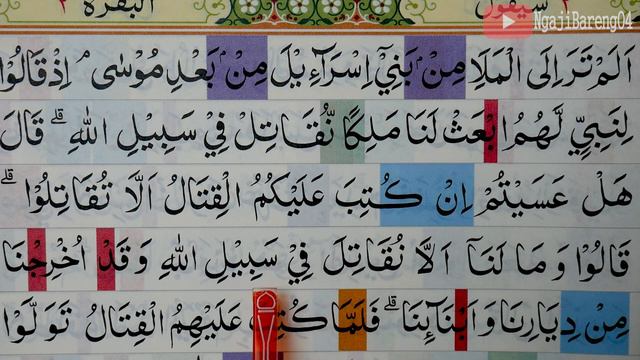 البقرة ٢
سيقول ٢
NgajiBareng04
اَلَمْ تَرَ اِلَى الْمَلَاِ مِنْۢ بَنِيْٓ اِسْرَاۤءِيْلَ مِنْۢ بَعْدِ مُوْسٰىۘ اِذْ قَالُوْا
لِنَبِيٍّ لَّهُمُ ابْعَثْ لَنَا مَلِكًا نُّقَاتِلْ فِيْ سَبِيْلِ اللّٰهِ ۗ قَالَ
هَلْ عَسَيْتُمْ اِنْ كُتِبَ عَلَيْكُمُ الْقِتَالُ اَلَّا تُقَاتِلُوْا ۗ
قَالُوْا وَمَا لَنَآ اَلَّا نُقَاتِلَ فِيْ سَبِيْلِ اللّٰهِ وَقَدْ اُخْرِجْنَا
مِنْ دِيَارِنَا وَاَبْنَاۤىِٕنَا ۗ فَلَمَّا كُتِبَ عَلَيْهِمُ الْقِتَالُ تَوَلَّوْا